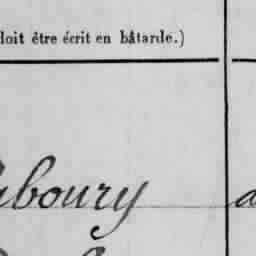 doit être écrit en bâtarde.)
aboury